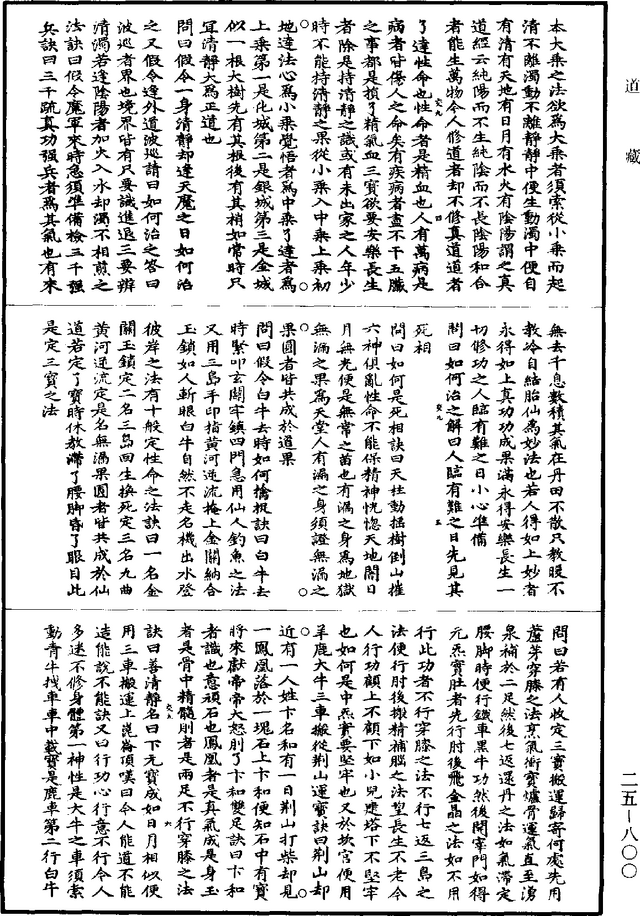 道藏
本大乘之法欲爲大乘者須索從小乘而起
清不離濁動不離靜靜中便生動濁中便自
有清有天地有日月有水火有陰陽謂之真
道經云純陽而不生純陰而不長陰陽和合
者能生萬物令人修道者却不修真道道者
了達性命也性命者是精血也人有萬病是
病者皆傷人之命矣有疾病者盡不干五臟
之事都是損了精氣血三寶欲要安樂長生
者除是持清靜之識或有未出家之人年少
時不能持清靜之果從小乘入中乘上乘初
地達法心爲小乘覺悟者爲中乘了達者爲
上乘第一是化城第二是銀城第三是金城
似一根大樹先有其根後有其梢如常時只
宜清靜大爲正道也
問曰假令一身清靜却逢天魔之日如何治
之又假令逢外道波巡請曰如何治之答曰
波巡者界也境界皆有只要識進退三要辨
清濁若逢陰陽者加火入水却濁不相煎之
法訣曰假令魔軍來時急須準備檢三千強
兵訣曰三千疏真功强兵者爲其氣也有來
無去千息數積其氣在丹田不散只教暖不
教冷自結胎仙爲妙法也若人得如上妙者
永得如上真功功成果滿永得安樂長生一
切修功之人臨有難之日小心準備
問曰如何治之解曰人臨有難之日先見其
死相
問曰如何是死相訣曰天柱動搖樹倒山摧
六神俱亂性命不能保精神恍惚天地闇日
月無光便是無常之苗也有漏之身爲地獄
無漏之果爲天堂人有漏之身須證無漏之
果圓者皆共成於道果
問曰假令白牛去時如何擒捉訣曰白牛去
時緊叩玄關牢鎮四門急用仙人釣魚之法
又用三島手印指黄河逆流掩上金關納合
玉鎖如人斬眼白牛自然不走名機出水登
彼岸之法有十般定性命之法訣曰一名金
關玉鎖定二名三島回生換死定三名九曲
黄河逆流定是名無漏果圓者皆共成於仙
道若定了寶時休教滯了腰脚昏了眼目此
是定三寶之法
問曰若有人收定三寶搬運歸於何處先用
蘆芽穿膝之法烹氣衝寶爐骨運氣直至湧
泉補於二足然後七返還丹之法如氣滯定
腰脚時便行鐵車黑牛功然後開宰門如得
元炁實壯者先行肘後飛金晶之法如不用
行此功者不行穿膝之法不行七返三島之
法便行肘後搬精補腦之法望長生不老令
人行功顧上不顧下如小兒建塔下不堅牢
也如何是中炁實要堅牢也又於坎宫便用
羊鹿大牛三車搬從荆山運寶訣曰荆山却
近有一人姓卞名和有一日荆山打柴却見
一鳳凰落於一塊石上卞和便知石中有寶
將來獻帝帝大怒刖了卞和雙足訣曰卞和
者識也意頑石也鳳凰者是真氣成是身玉
者是骨中精髓刖者是兩足不行穿膝之法
訣曰善清靜名曰下元寶成如日月相似便
用三車搬運上崑崙頂嘆曰令人能道不能
造能說不能訣又曰行功心行意不行令人
多迷不修身體第一神性是大牛之車須索
動青牛拽車車中載寶是鹿車第二行白牛
二五-八〇〇